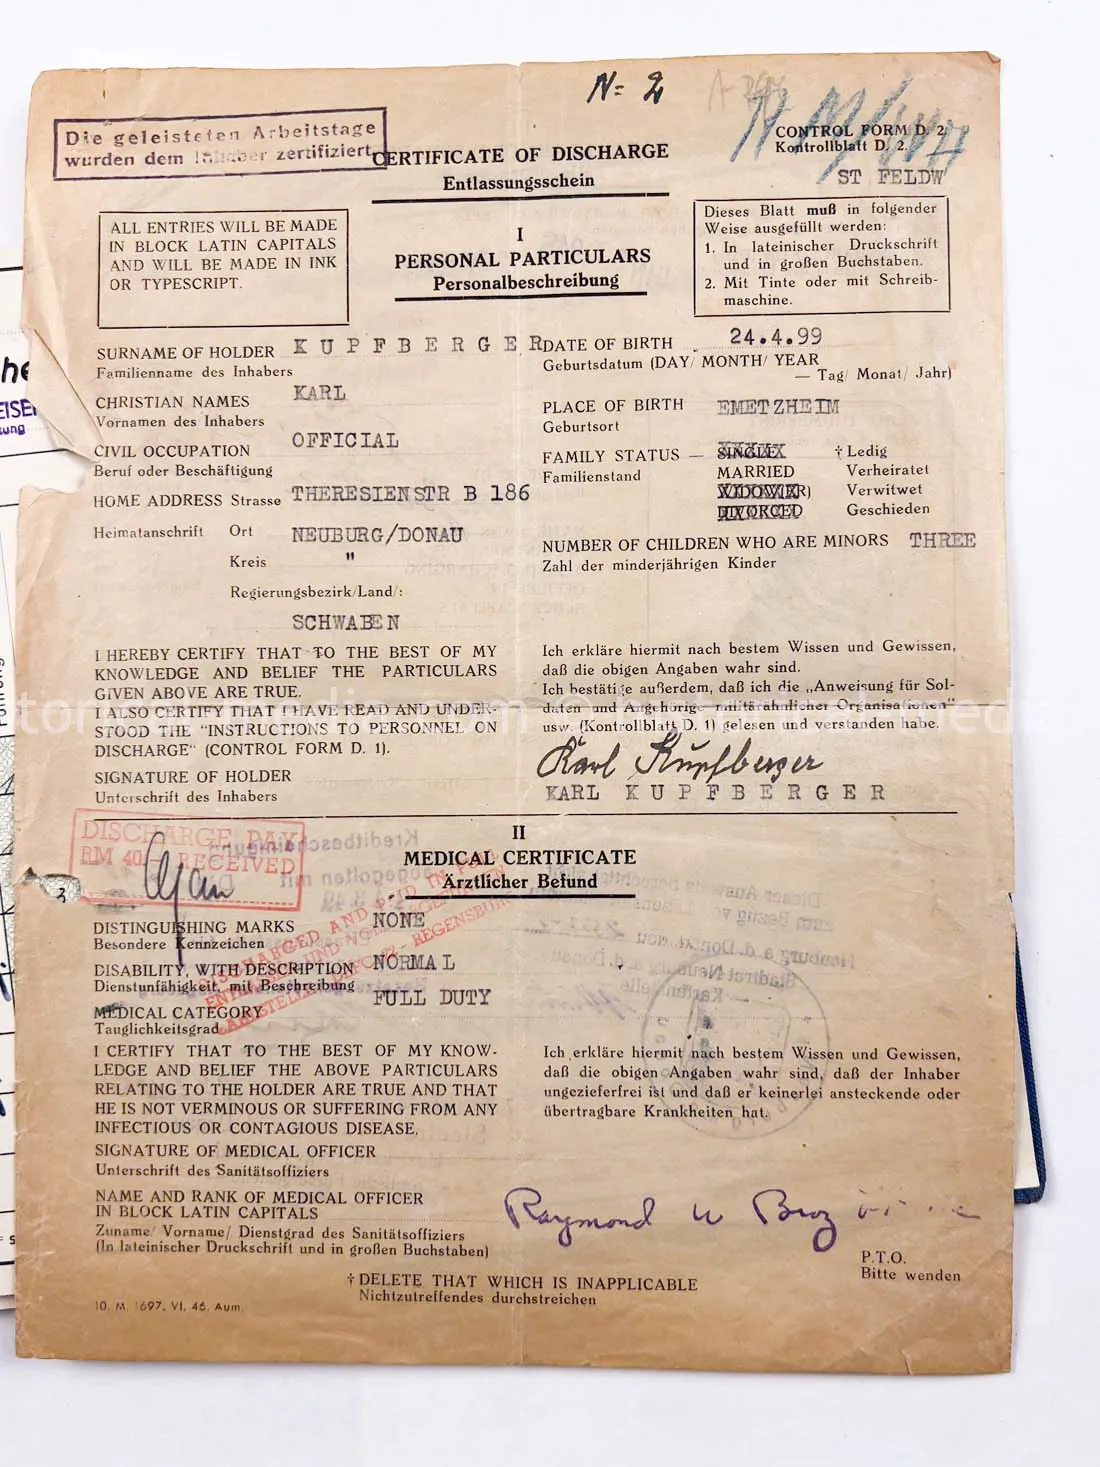 N= 2
Die geleisteten Arbeitstage
wurden dem Inhaber zertifiziert
CONTROL FORM D. 2.
Kontrollblatt D. 2.
ST FELDW
CERTIFICATE OF DISCHARGE
Entlassungsschein
ALL ENTRIES WILL BE MADE
IN BLOCK LATIN CAPITALS
AND WILL BE MADE IN INK
OR TYPESCRIPT.
I
PERSONAL PARTICULARS
Personalbeschreibung
Dieses Blatt muß in folgender
Weise ausgefüllt werden:
1. In lateinischer Druckschrift
und in großen Buchstaben.
2. Mit Tinte oder mit Schreib-
maschine.
SURNAME OF HOLDER KUPFBERGER
Familienname des Inhabers
CHRISTIAN NAMES KARL
Vornamen des Inhabers
CIVIL OCCUPATION OFFICIAL
Beruf oder Beschäftigung
HOME ADDRESS Strasse THERESIENSTR B 186
Heimatanschrift Ort NEUBURG/DONAU
Kreis "
Regierungsbezirk/Land/:
SCHWABEN
DATE OF BIRTH 24.4.99
Geburtsdatum (DAY/ MONTH/ YEAR
— Tag/ Monat/ Jahr)
PLACE OF BIRTH EMETZHEIM
Geburtsort
FAMILY STATUS — SINGLE † Ledig
Familienstand MARRIED Verheiratet
WIDOW(ER) Verwitwet
DIVORCED Geschieden
NUMBER OF CHILDREN WHO ARE MINORS THREE
Zahl der minderjährigen Kinder
I HEREBY CERTIFY THAT TO THE BEST OF MY
KNOWLEDGE AND BELIEF THE PARTICULARS
GIVEN ABOVE ARE TRUE.
I ALSO CERTIFY THAT I HAVE READ AND UNDER-
STOOD THE "INSTRUCTIONS TO PERSONNEL ON
DISCHARGE" (CONTROL FORM D. 1).
SIGNATURE OF HOLDER
Unterschrift des Inhabers
Ich erkläre hiermit nach bestem Wissen und Gewissen,
daß die obigen Angaben wahr sind.
Ich bestätige außerdem, daß ich die „Anweisung für Sol-
daten und Angehörige militärähnlicher Organisationen"
usw. (Kontrollblatt D. 1) gelesen und verstanden habe.
Karl Kupfberger
KARL KUPFBERGER
DISCHARGE PAY
RM 40.- RECEIVED
II
MEDICAL CERTIFICATE
Ärztlicher Befund
DISCHARGED AND PAID IN FULL
REGENSBURG
DISTINGUISHING MARKS NONE
Besondere Kennzeichen
DISABILITY, WITH DESCRIPTION NORMAL
Dienstunfähigkeit, mit Beschreibung
MEDICAL CATEGORY FULL DUTY
Tauglichkeitsgrad
I CERTIFY THAT TO THE BEST OF MY KNOW-
LEDGE AND BELIEF THE ABOVE PARTICULARS
RELATING TO THE HOLDER ARE TRUE AND THAT
HE IS NOT VERMINOUS OR SUFFERING FROM ANY
INFECTIOUS OR CONTAGIOUS DISEASE.
Ich erkläre hiermit nach bestem Wissen und Gewissen,
daß die obigen Angaben wahr sind, daß der Inhaber
ungezieferfrei ist und daß er keinerlei ansteckende oder
übertragbare Krankheiten hat.
SIGNATURE OF MEDICAL OFFICER
Unterschrift des Sanitätsoffiziers
NAME AND RANK OF MEDICAL OFFICER
IN BLOCK LATIN CAPITALS
Zuname/ Vorname/ Dienstgrad des Sanitätsoffiziers
(In lateinischer Druckschrift und in großen Buchstaben)
Raymond W
P.T.O.
Bitte wenden
† DELETE THAT WHICH IS INAPPLICABLE
Nichtzutreffendes durchstreichen
10. M. 1697. VI. 46. Aum.